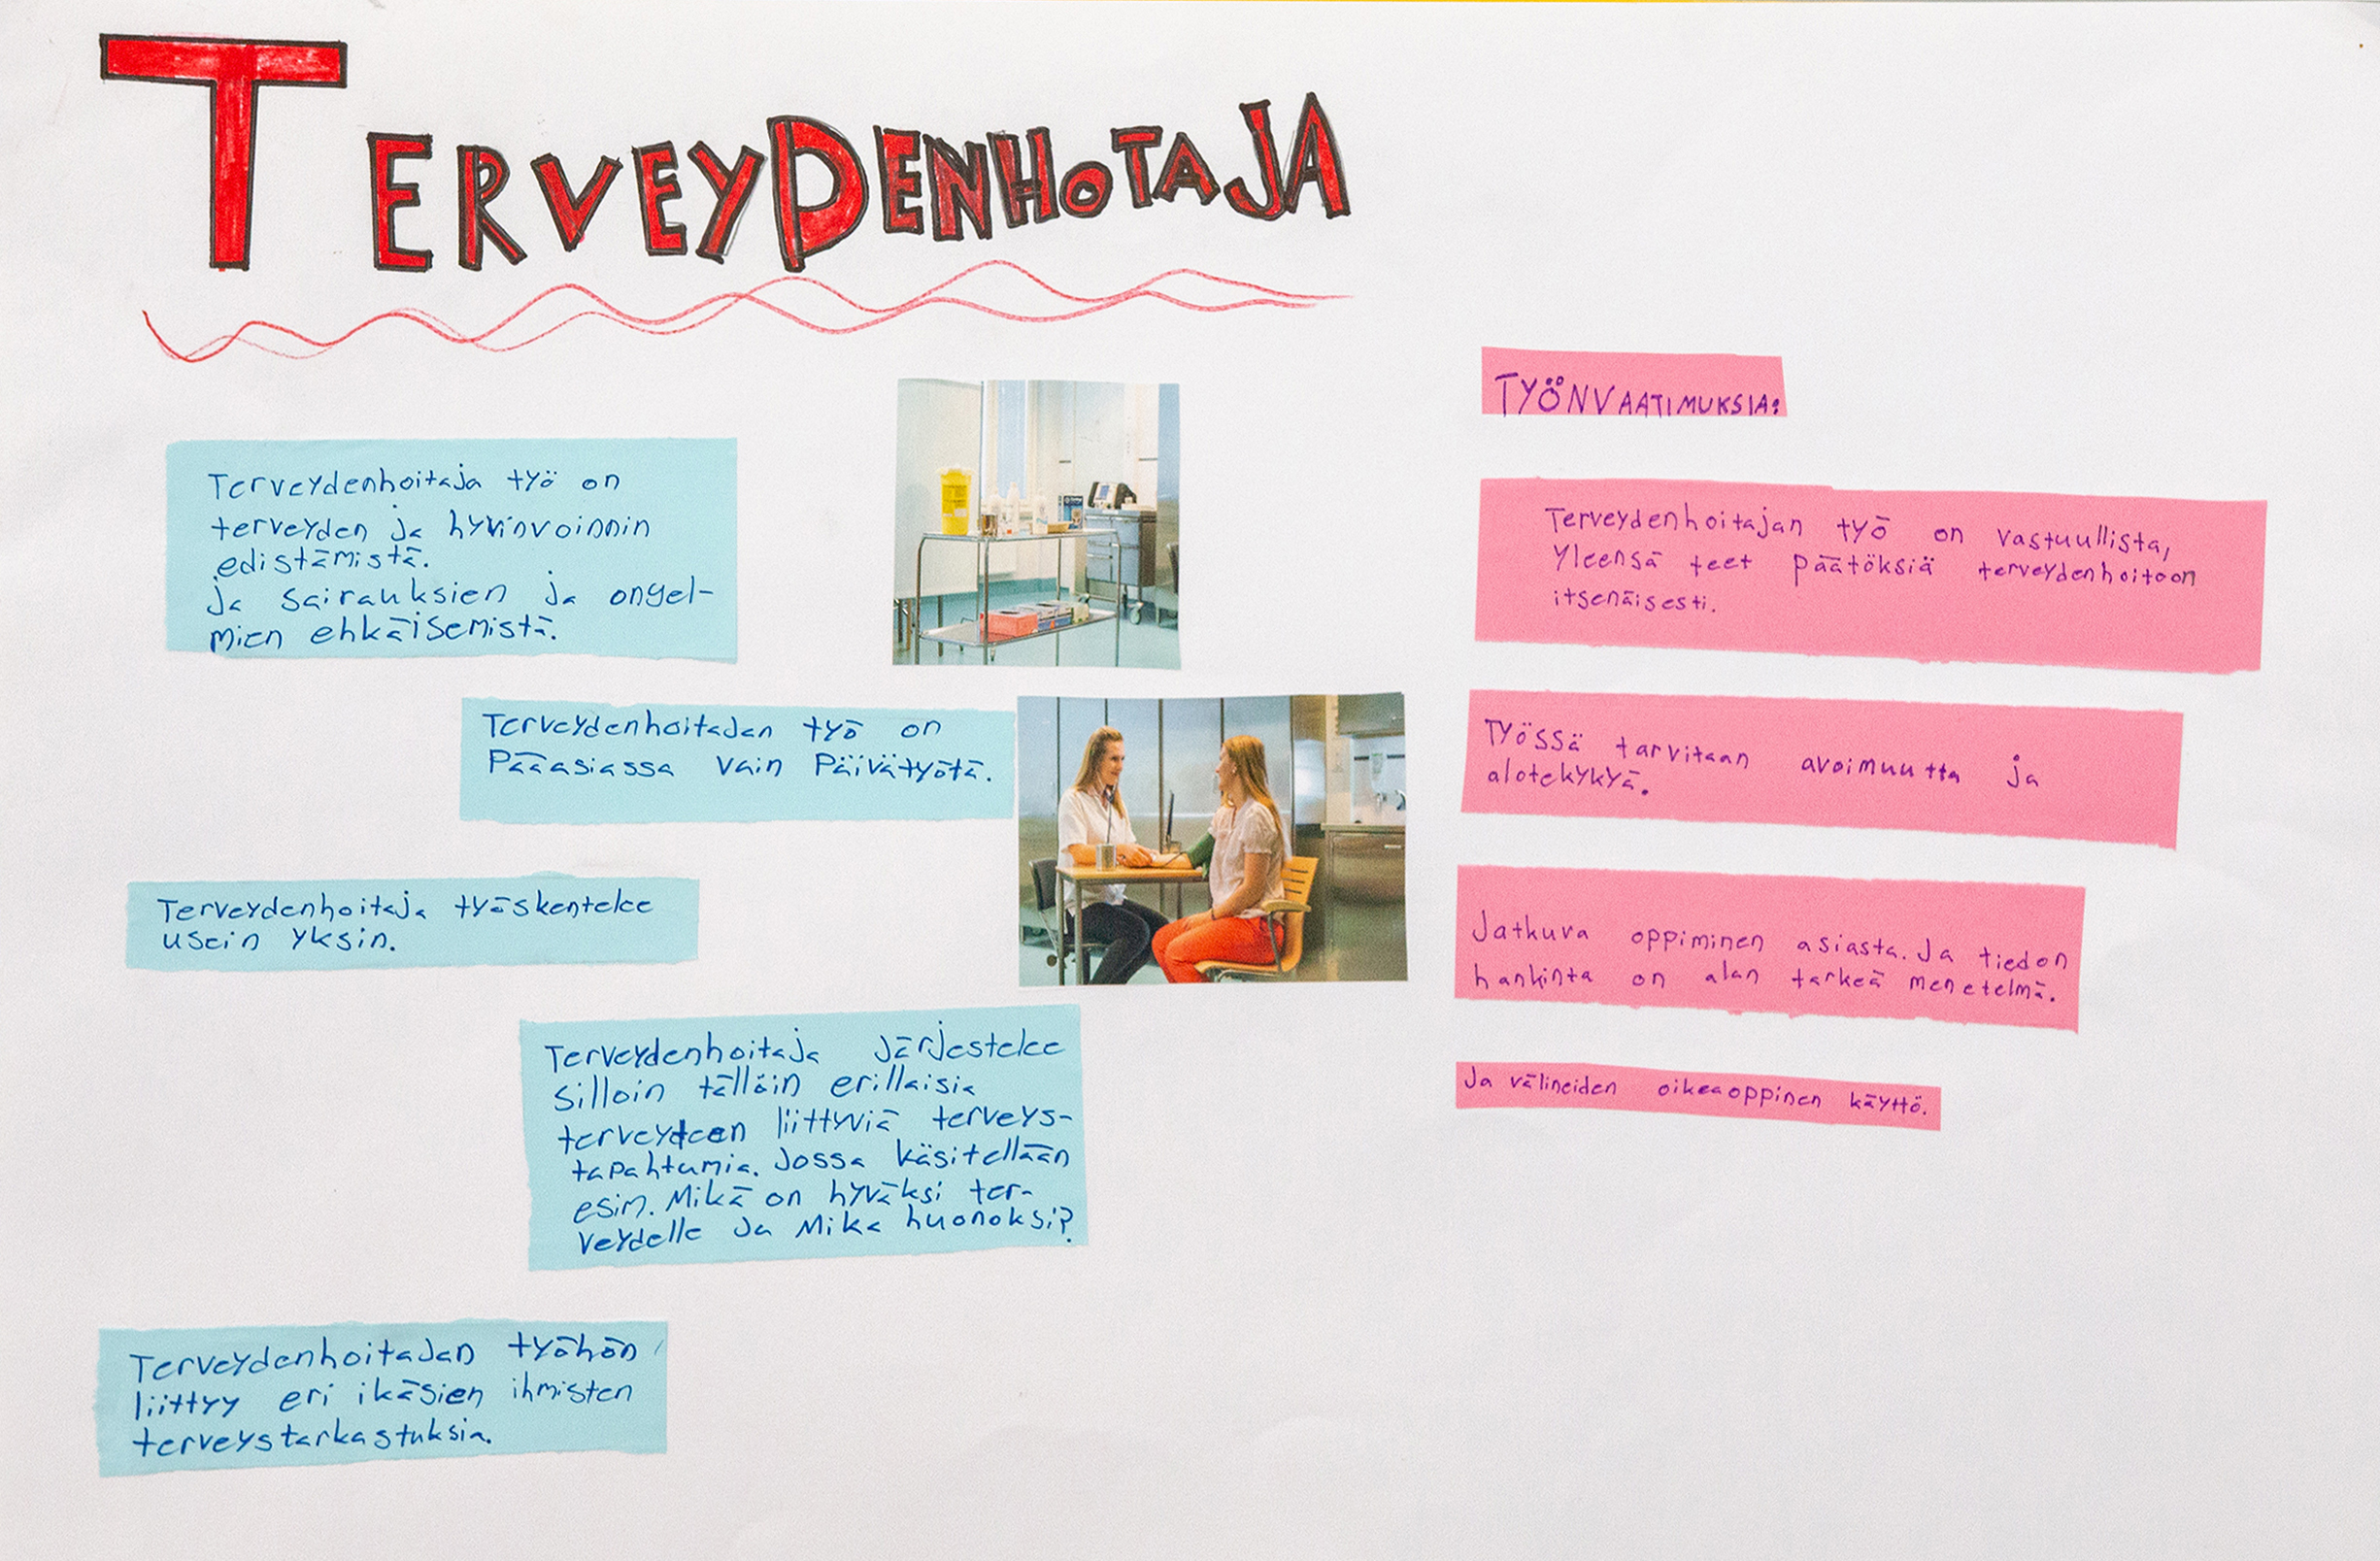 TERVEYDENHOTAJA
Terveydenhoitaja työ on
terveyden ja hyvinvoinnin
edistämistä.
ja sairauksien ja ongel-
mien ehkäisemistä.
Terveydenhoitajan työ on
Pääasiassa vain Päivätyötä.
Terveydenhoitaja työskentelee
usein yksin.
Terveydenhoitaja Järjestelee
silloin tällöin erillaisia
terveyteen liittyviä terveys-
tapahtumia. Jossa käsitellään
esim. Mikä on hyväksi ter-
veydelle Ja Mika huonoksi?
Terveydenhoitajan työhön
liittyy eri ikäsien ihmisten
terveystarkastuksia.
TYÖNVAATIMUKSIA:
Terveydenhoitajan työ on vastuullista,
Yleensä teet päätöksiä terveydenhoitoon
itsenäisesti.
Työssä tarvitaan avoimuutta ja
alotekykyä.
Jatkuva oppiminen asiasta. Ja tiedon
hankinta on alan tarkeä menetelmä.
Ja välineiden oikeaoppinen käyttö.